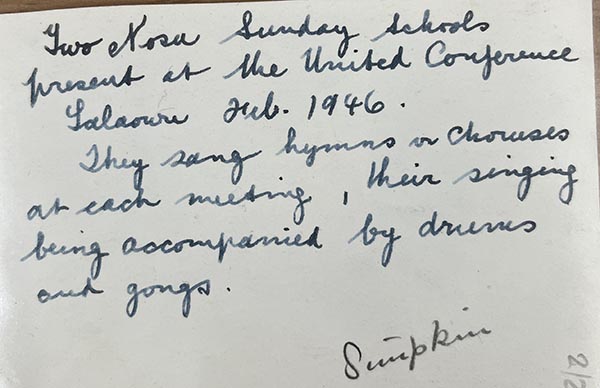 Two Nosu Sunday Schools
present at the United Conference
Salaowu Feb. 1946.
They sang hymns or choruses
at each meeting, their singing
being accompanied by drums
and gongs.
Simpkin
2/2